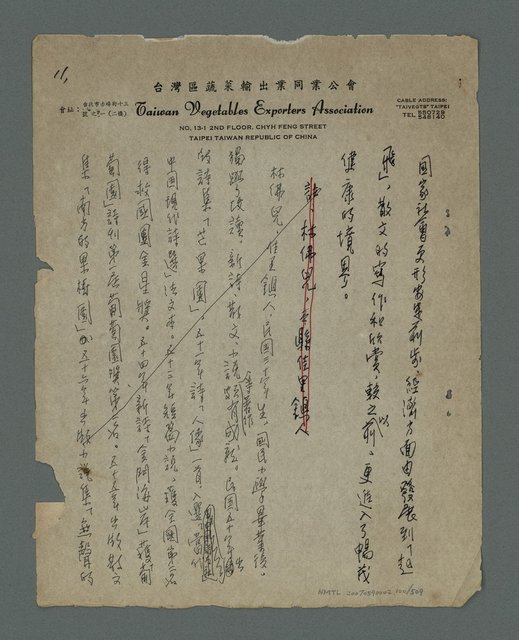 11,
台灣區蔬菜輸出業同業公會
會址：台北市赤峰街十三號之一(二樓)
Taiwan Vegetables Exporters Association
CABLE ADDRESS:
"TAIVEGTB" TAIPEI
TEL 550728
NO. 13-1 2ND FLOOR. CHYH FENG STREET
TAIPEI TAIWAN REPUBLIC OF CHINA
國家社會更形安定前步，經濟方面由發展到「起
飛」，散文的寫作和欣賞，賴之以前，更進入了暢茂
健康的境界。
林佛兒，台南縣佳里鎮人
林佛兒，佳里鎮人，民國三十年生，國民小學畢業後，
新詩、散文、小說等著作頗有成就。民國五十年出
的詩集「芒果園」。五十一年詩「人像」一首，入選「當代
中國現代詩選」法文本。五十三年短篇小說，獲全國第一名
得救國團金星獎。五十四年新詩「金門海岸」獲葡
萄園」詩刊第一屆葡萄園獎第一名。五十五年出版散文
集「南方的果樹園」。五十六年出版小說集「無聲的
NMTL 20070590002 100/509